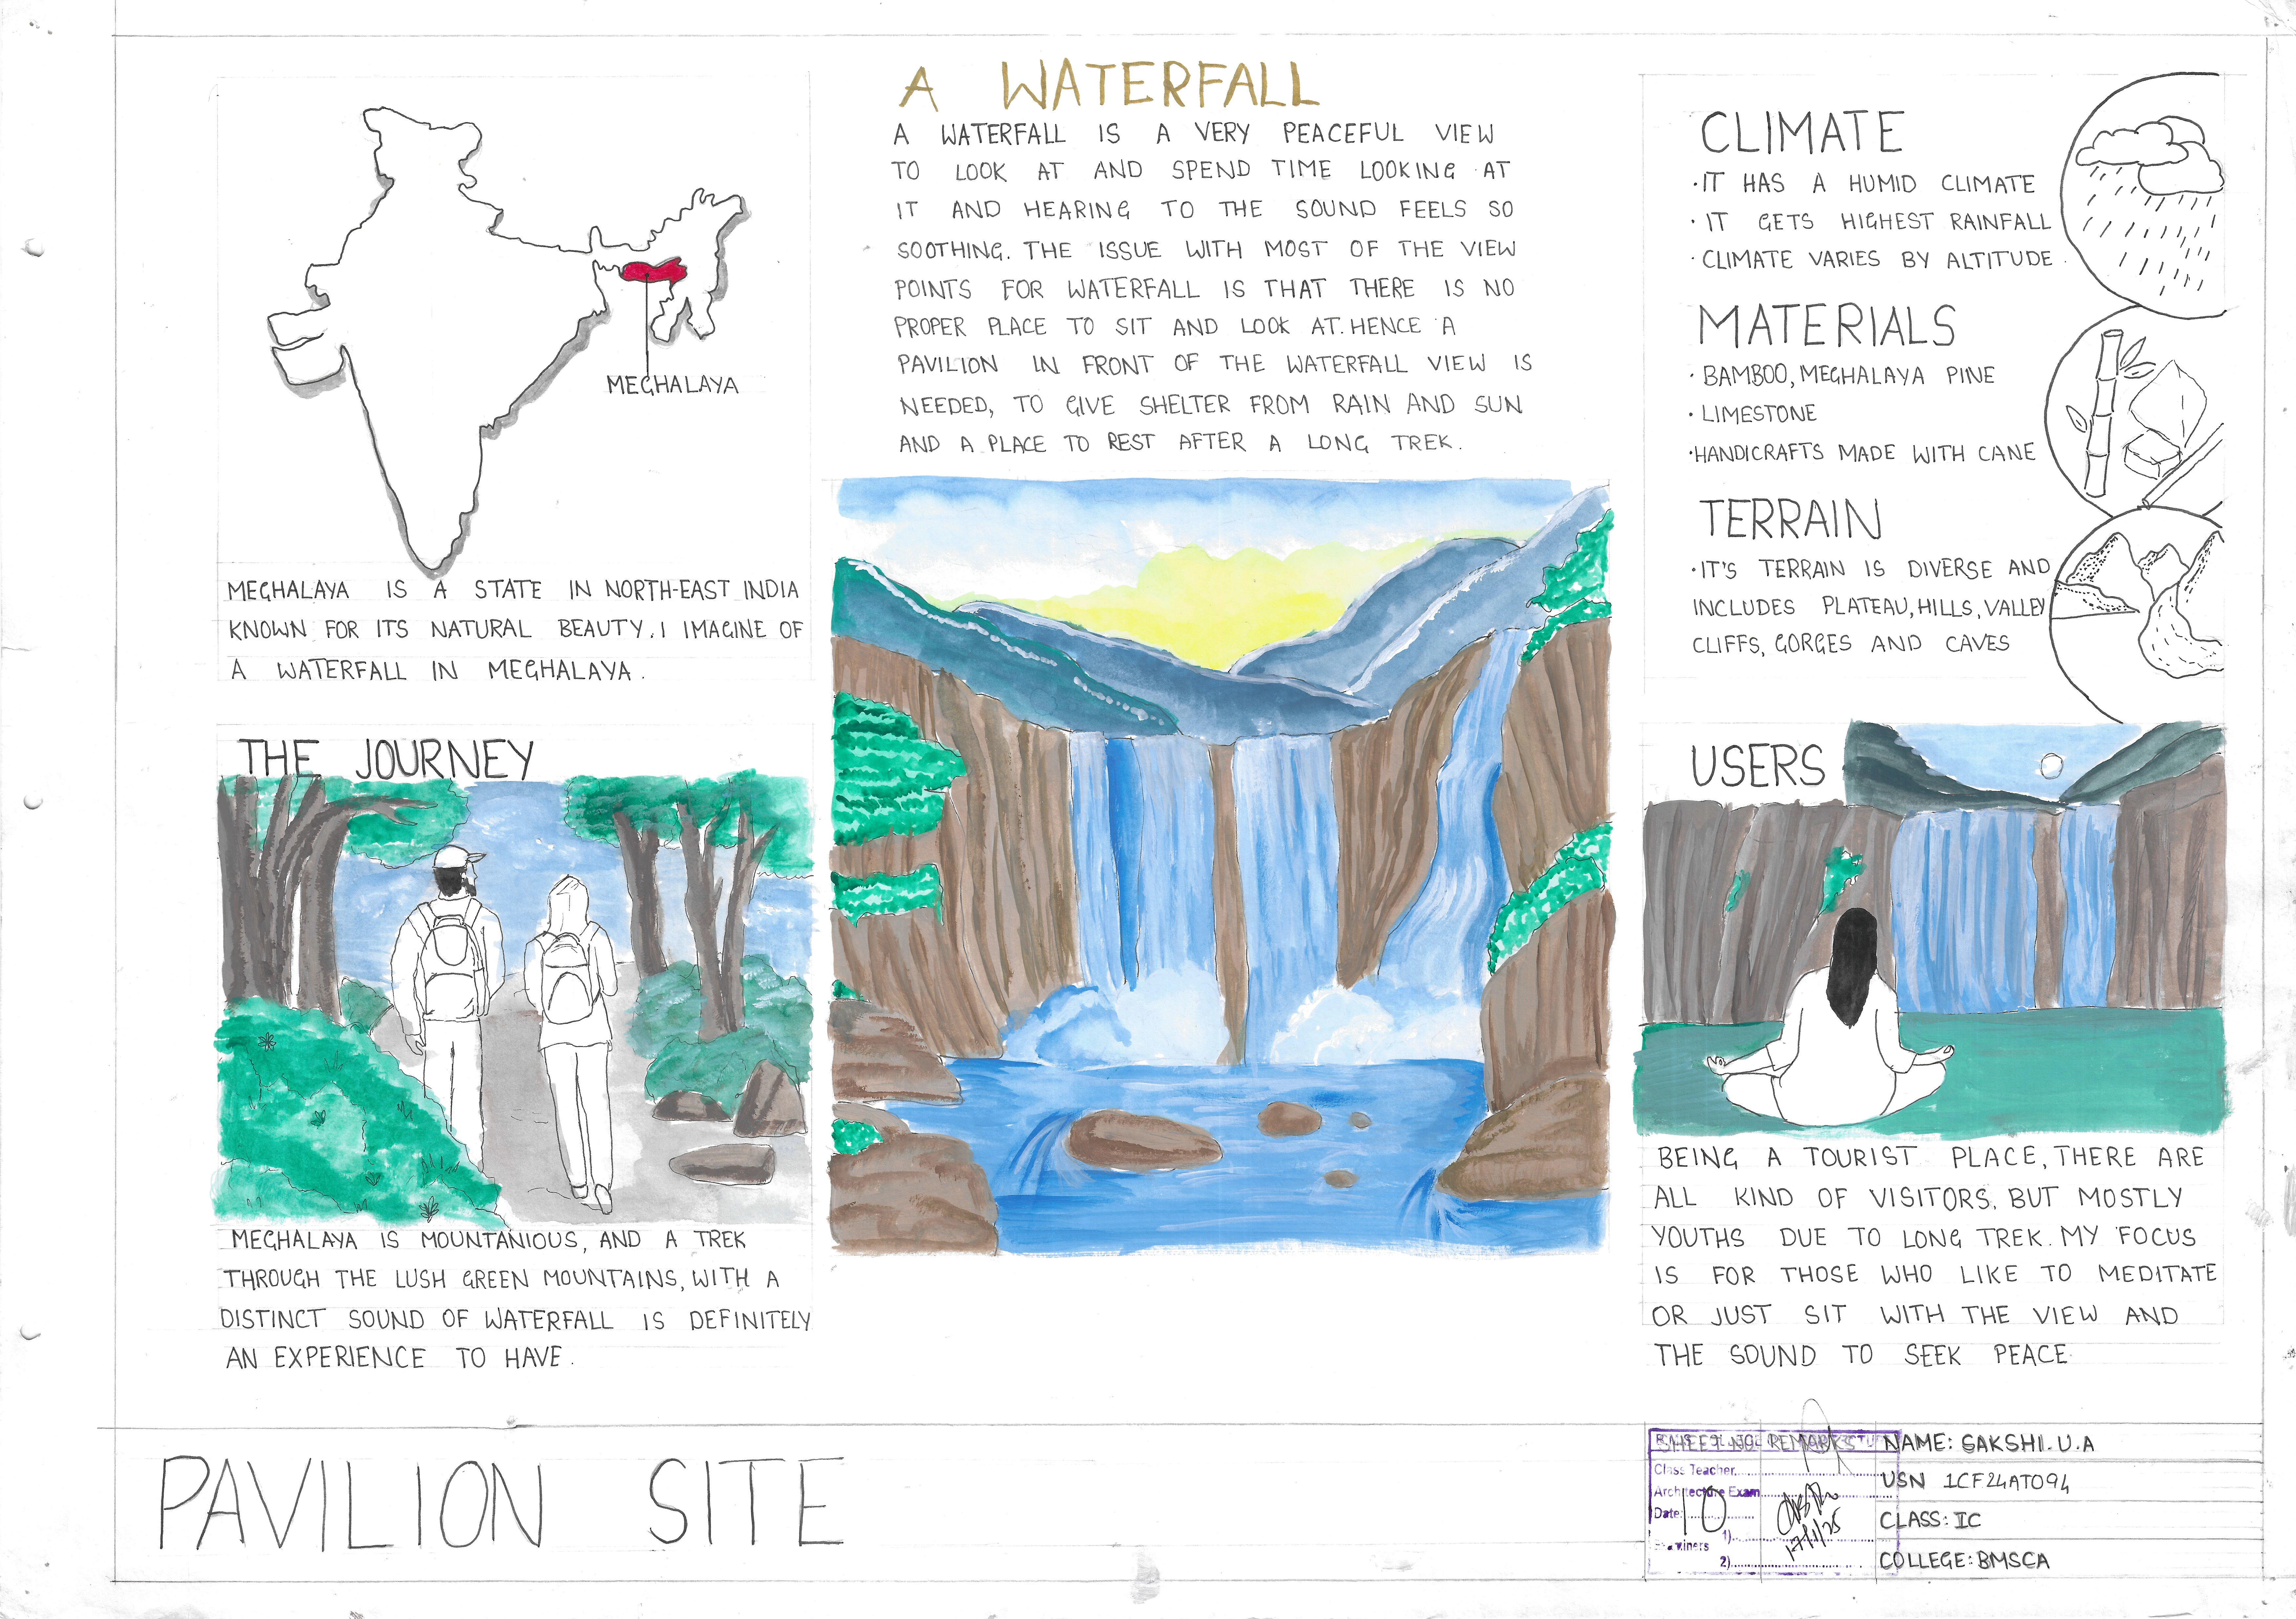 MEGHALAYA
MEGHALAYA IS A STATE IN NORTH-EAST INDIA
KNOWN FOR ITS NATURAL BEAUTY. I IMAGINE OF
A WATERFALL IN MEGHALAYA.
THE JOURNEY
MEGHALAYA IS MOUNTANIOUS, AND A TREK
THROUGH THE LUSH GREEN MOUNTAINS, WITH A
DISTINCT SOUND OF WATERFALL IS DEFINITELY
AN EXPERIENCE TO HAVE.
A WATERFALL
A WATERFALL IS A VERY PEACEFUL VIEW
TO LOOK AT AND SPEND TIME LOOKING AT
IT AND HEARING TO THE SOUND FEELS SO
SOOTHING. THE ISSUE WITH MOST OF THE VIEW
POINTS FOR WATERFALL IS THAT THERE IS NO
PROPER PLACE TO SIT AND LOOK AT. HENCE A
PAVILION IN FRONT OF THE WATERFALL VIEW IS
NEEDED, TO GIVE SHELTER FROM RAIN AND SUN
AND A PLACE TO REST AFTER A LONG TREK.
CLIMATE
·IT HAS A HUMID CLIMATE
· IT GETS HIGHEST RAINFALL
· CLIMATE VARIES BY ALTITUDE.
MATERIALS
· BAMBOO, MEGHALAYA PINE
· LIMESTONE
·HANDICRAFTS MADE WITH CANE
TERRAIN
·IT'S TERRAIN IS DIVERSE AND
INCLUDES PLATEAU, HILLS, VALLEY
CLIFFS, GORGES AND CAVES
USERS
BEING A TOURIST PLACE, THERE ARE
ALL KIND OF VISITORS. BUT MOSTLY
YOUTHS DUE TO LONG TREK. MY FOCUS
IS FOR THOSE WHO LIKE TO MEDITATE
OR JUST SIT WITH THE VIEW AND
THE SOUND TO SEEK PEACE
PAVILION SITE
SHEET NO. REMARKS
Class Teacher
Architecture Exam
Date:
10
17/1/25
1)
2)
NAME: SAKSHI. U. A
USN 1CF24AT094
CLASS: IC
COLLEGE: BMSCA